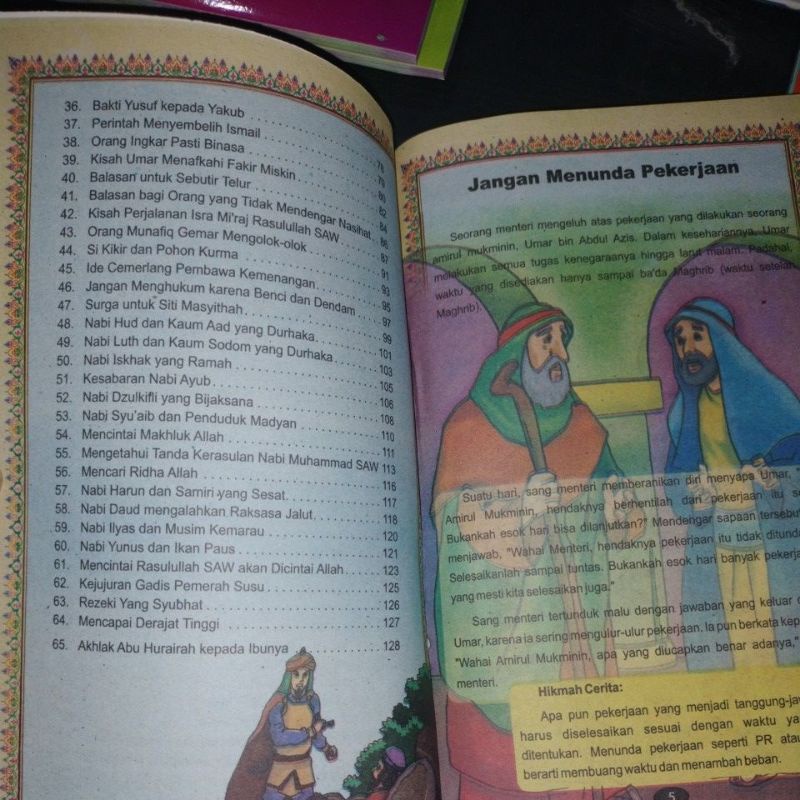 36. Bakti Yusuf kepada Yakub 78
37. Perintah Menyembelih Ismail 79
38. Orang Ingkar Pasti Binasa 80
39. Kisah Umar Menafkahi Fakir Miskin 82
40. Balasan untuk Sebutir Telur 84
41. Balasan bagi Orang yang Tidak Mendengar Nasihat 86
42. Kisah Perjalanan Isra Mi'raj Rasulullah SAW 87
43. Orang Munafiq Gemar Mengolok-olok 91
44. Si Kikir dan Pohon Kurma 93
45. Ide Cemerlang Pembawa Kemenangan 95
46. Jangan Menghukum karena Benci dan Dendam 97
47. Surga untuk Siti Masyithah 99
48. Nabi Hud dan Kaum Aad yang Durhaka 101
49. Nabi Luth dan Kaum Sodom yang Durhaka 103
50. Nabi Iskhak yang Ramah 105
51. Kesabaran Nabi Ayub 106
52. Nabi Dzulkifli yang Bijaksana 108
53. Nabi Syu'aib dan Penduduk Madyan 110
54. Mencintai Makhluk Allah 111
55. Mengetahui Tanda Kerasulan Nabi Muhammad SAW 113
56. Mencari Ridha Allah 116
57. Nabi Harun dan Samiri yang Sesat 117
58. Nabi Daud mengalahkan Raksasa Jalut 118
59. Nabi Ilyas dan Musim Kemarau 120
60. Nabi Yunus dan Ikan Paus 121
61. Mencintai Rasulullah SAW akan Dicintai Allah 123
62. Kejujuran Gadis Pemerah Susu 125
63. Rezeki Yang Syubhat 126
64. Mencapai Derajat Tinggi 127
65. Akhlak Abu Hurairah kepada Ibunya 128
Jangan Menunda Pekerjaan
Seorang menteri mengeluh atas pekerjaan yang dilakukan seorang
amirul mukminin, Umar bin Abdul Azis. Dalam kesehariannya, Umar
melakukan semua tugas kenegaraanya hingga larut malam. Padahal,
waktu yang disediakan hanya sampai ba'da Maghrib (waktu setelah
Maghrib).
Suatu hari, sang menteri memberanikan diri menyapa Umar,
Amirul Mukminin, hendaknya berhentilah dari pekerjaan itu
Bukankah esok hari bisa dilanjutkan?" Mendengar sapaan tersebut
menjawab, "Wahai Menteri, hendaknya pekerjaan itu tidak ditunda
Selesaikanlah sampai tuntas. Bukankah esok hari banyak pekerja
yang mesti kita selesaikan juga."
Sang menteri tertunduk malu dengan jawaban yang keluar
Umar, karena ia sering mengulur-ulur pekerjaan. Ia pun berkata kep
"Wahai Amirul Mukminin, apa yang diucapkan benar adanya,"
menteri.
Hikmah Cerita:
Apa pun pekerjaan yang menjadi tanggung-jaw
harus diselesaikan sesuai dengan waktu ya
ditentukan. Menunda pekerjaan seperti PR atau
berarti membuang waktu dan menambah beban.
5